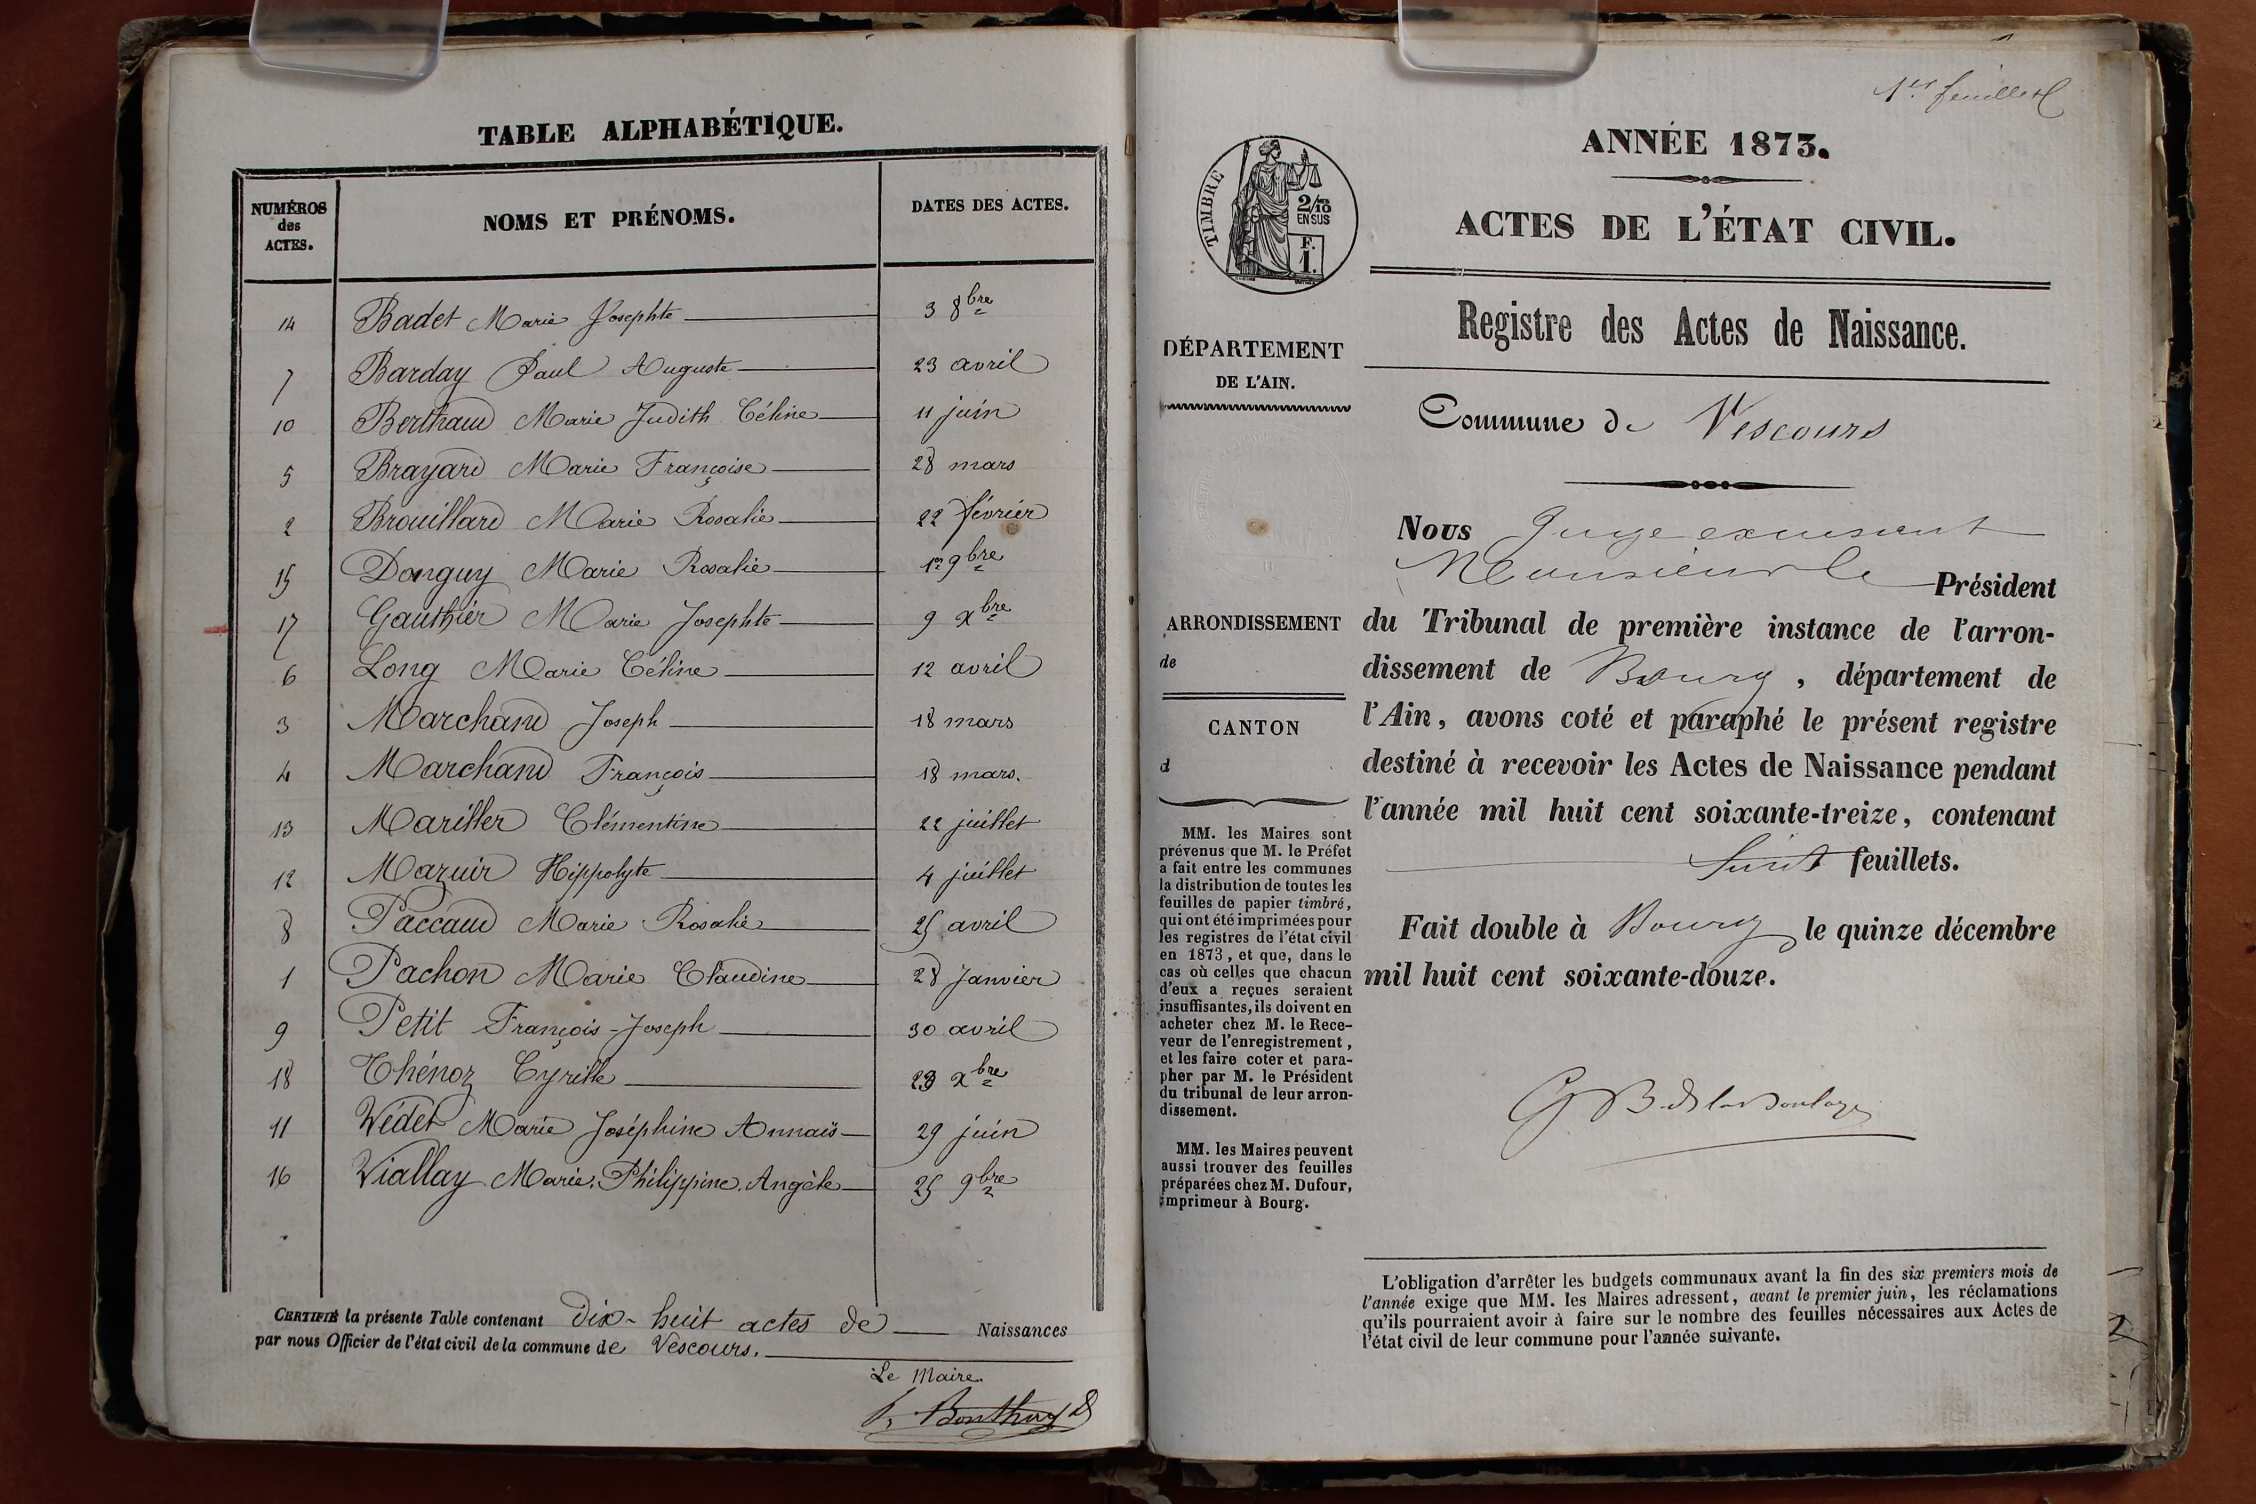 TABLE ALPHABÉTIQUE.
NUMÉROS des ACTES. NOMS ET PRÉNOMS. DATES DES ACTES.
14 Badet Marie Josephte 3 8bre
7 Barday Paul Auguste 23 avril
10 Berthaud Marie Judith Céline 11 juin
5 Brayard Marie Françoise 28 mars
2 Brouillard Marie Rosalie 22 février
15 Donguy Marie Rosalie 1er 9bre
17 Gauthier Marie Josephte 9 xbre
6 Long Marie Céline 12 avril
3 Marchand Joseph 18 mars
4 Marchand François 18 mars.
13 Mariller Clémentine 22 juillet
12 Mazuir Hippolyte 4 juillet
8 Paccaud Marie Rosalie 25 avril
1 Pachon Marie Claudine 28 Janvier
9 Petit François-Joseph 30 avril
18 Thénoz Cyrille xbre
11 Védet Marie Joséphine Annaïs 29 juin
16 Viallay Marie. Philippine. Angèle 25 9bre
CERTIFIÉ la présente Table contenant dix-huit actes de Naissances
par nous Officier de l'état civil de la commune de Vescours.
Le Maire.
1er feuillet
ANNÉE 1873.
ACTES DE L'ÉTAT CIVIL.
TIMBRE
2/10
EN SUS
F.
1.
Registre des Actes de Naissance.
DÉPARTEMENT
DE L'AIN.
Commune de Vescours
Nous Juge excusant
Monsieur le Président
du Tribunal de première instance de l'arron-
dissement de Bourg, département de
l'Ain, avons coté et paraphé le présent registre
destiné à recevoir les Actes de Naissance pendant
l'année mil huit cent soixante-treize, contenant
huit feuillets.
Fait double à Bourg le quinze décembre
mil huit cent soixante-douze.
ARRONDISSEMENT
de
CANTON
d
MM. les Maires sont
prévenus que M. le Préfet
a fait entre les communes
la distribution de toutes les
feuilles de papier timbré,
qui ont été imprimées pour
les registres de l'état civil
en 1873, et que, dans le
cas où celles que chacun
d'eux a reçues seraient
insuffisantes, ils doivent en
acheter chez M. le Rece-
veur de l'enregistrement,
et les faire coter et para-
pher par M. le Président
du tribunal de leur arron-
dissement.
MM. les Maires peuvent
aussi trouver des feuilles
préparées chez M. Dufour,
imprimeur à Bourg.
L'obligation d'arrêter les budgets communaux avant la fin des six premiers mois de
l'année exige que MM. les Maires adressent, avant le premier juin, les réclamations
qu'ils pourraient avoir à faire sur le nombre des feuilles nécessaires aux Actes de
l'état civil de leur commune pour l'année suivante.